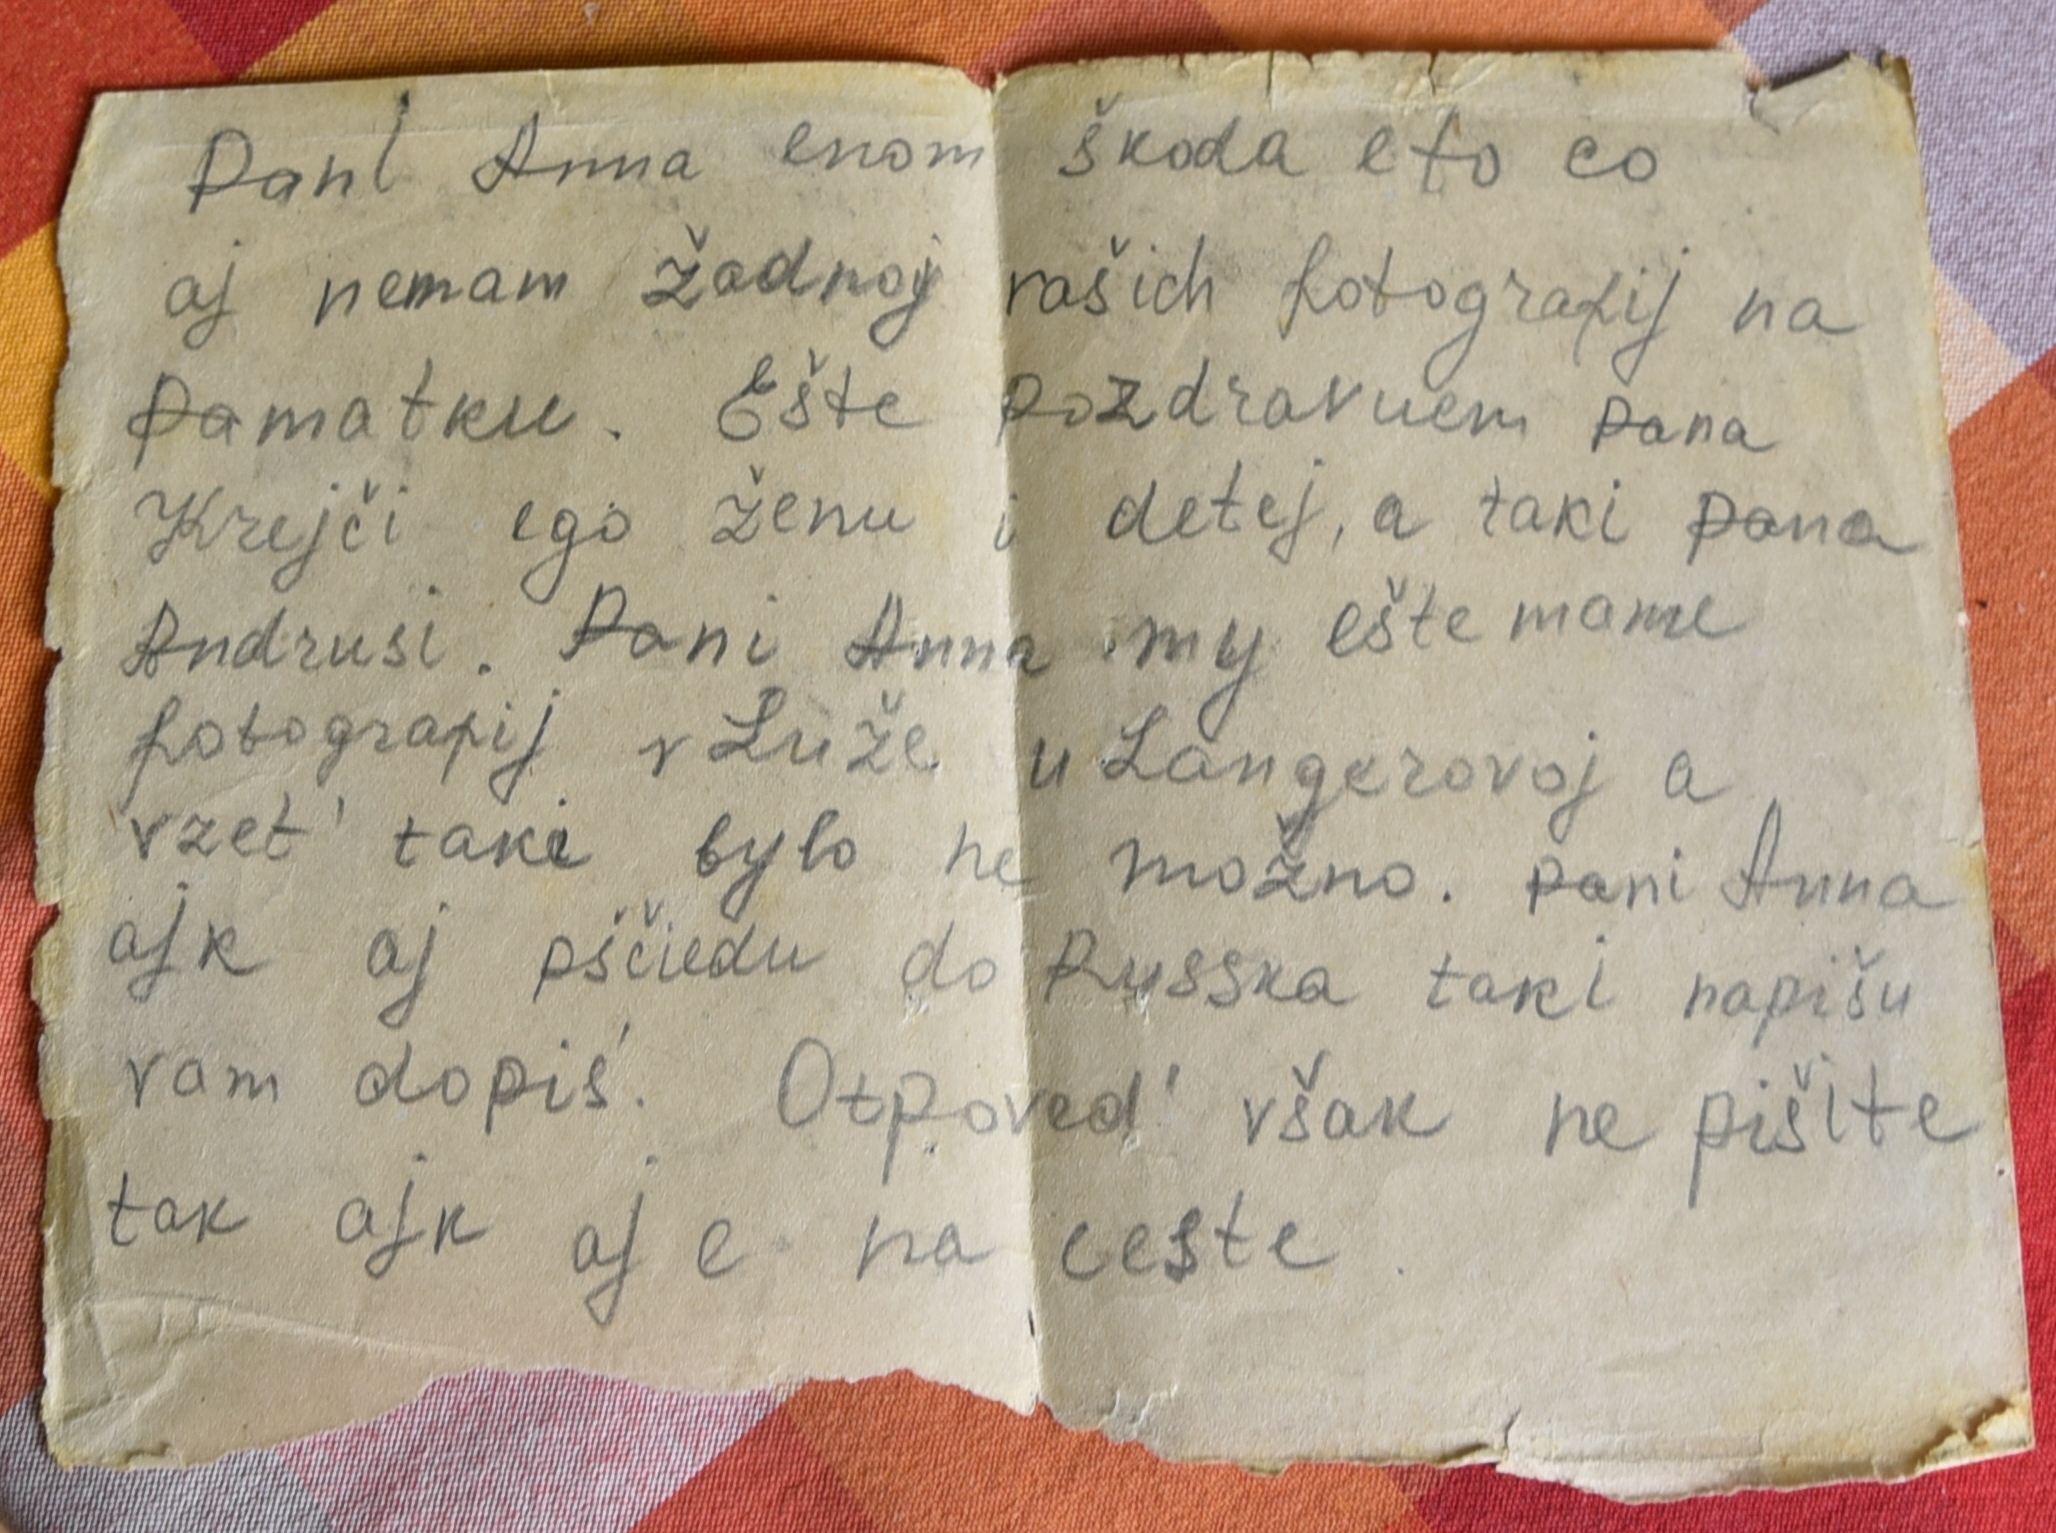 Pani Anna enom škoda eto co
aj nemam žadnoj vašich fotografij na
pamatku. Ešte pozdravuem pana
Krejči ego ženu i detej, a taki pana
Andrusi. Pani Anna my ešte mame
fotografij v Luže u Langerovoj a
vzet' taki bylo ne možno. pani Anna
ajk aj pščiedu do Russka taki napišu
vam dopiś. Otpoved' však ne pišite
tak ajk aj e na ceste.